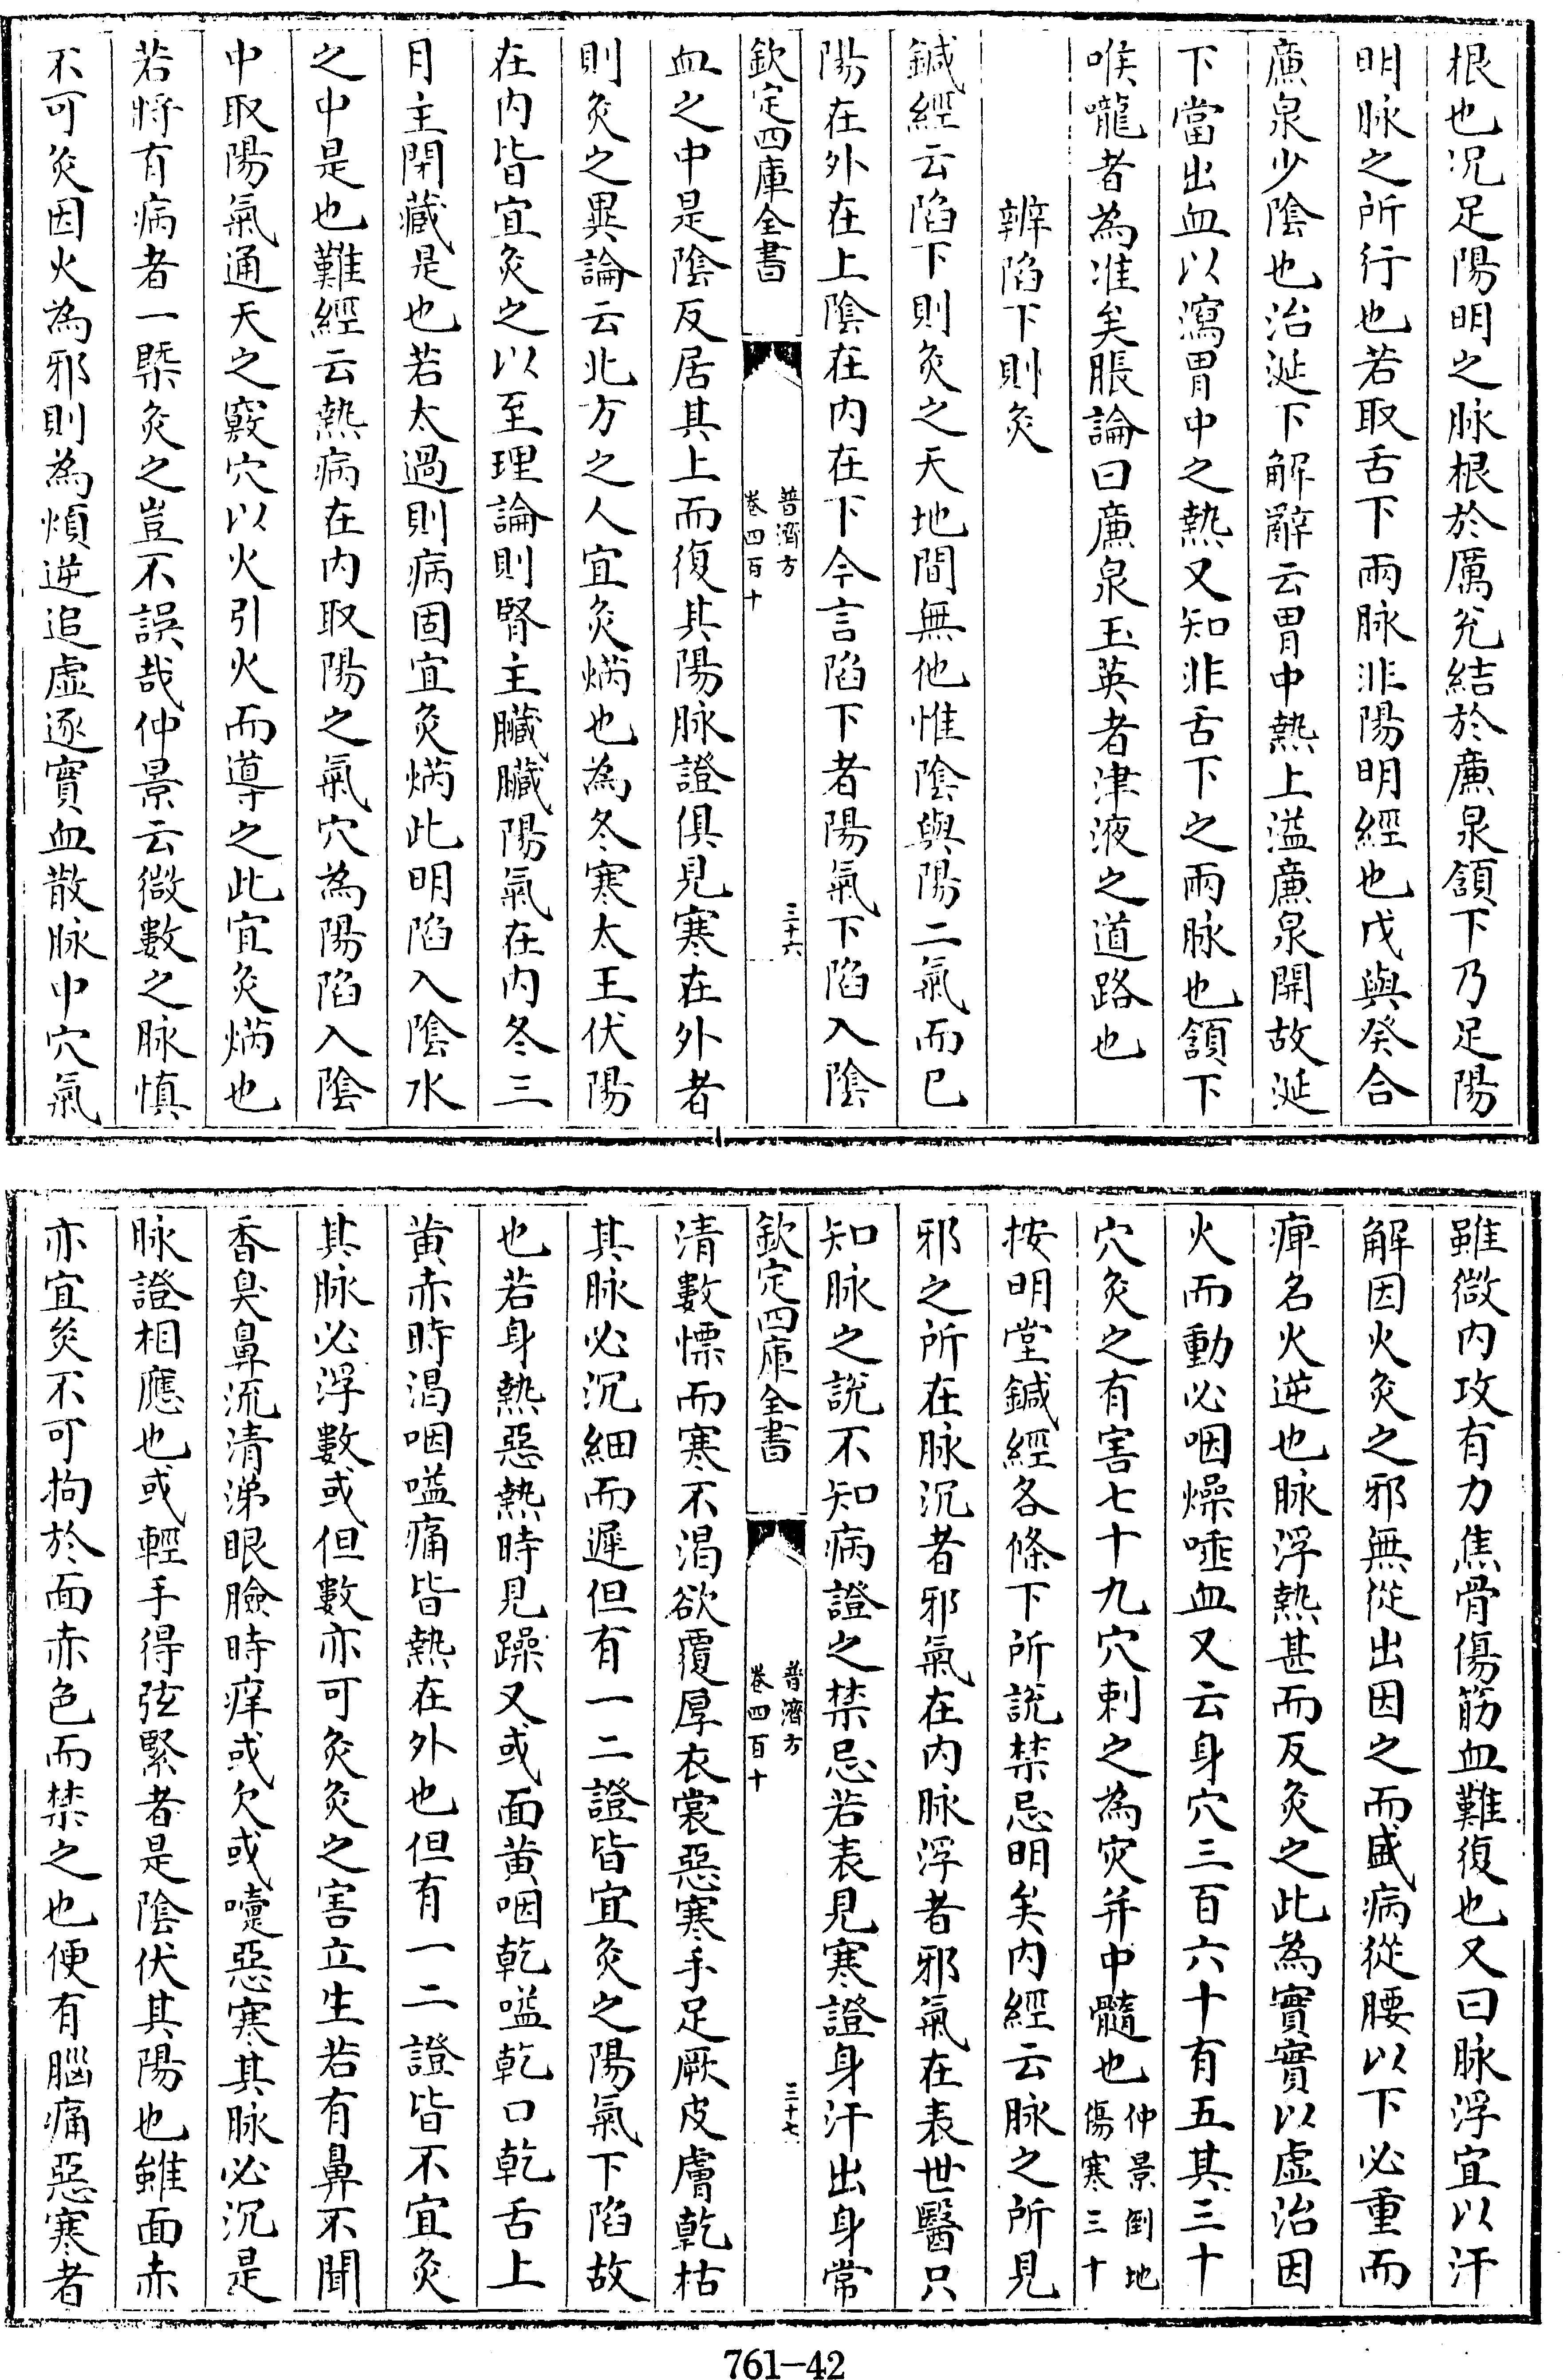 根也况足陽明之脉根於厲兊結於廉泉頷下乃足陽
明脉之所行也若取舌下兩脉非陽明經也戊與癸合
廉泉少陰也治涎下解辭云胃中熱上溢廉泉開故涎
下當出血以瀉胃中之熱又知非舌下之兩脉也頷下
喉嚨者為准矣脹論曰廉泉玉英者津液之道路也
辨陷下則灸
鍼經云陷下則灸之天地間無他惟陰與陽二氣而已
陽在外在上陰在内在下今言陷下者陽氣下陷入陰
欽定四庫全書
普濟方
卷四百十
三十六
血之中是陰反居其上而復其陽脉證俱見寒在外者
則灸之異論云北方之人宜灸焫也為冬寒太王伏陽
在内皆宜灸之以至理論則腎主臟臟陽氣在内冬三
月主閉藏是也若太過則病固宜灸焫此明陷入陰水
之中是也難經云熱病在内取陽之氣穴為陽陷入陰
中取陽氣通天之竅穴以火引火而導之此宜灸焫也
若將有病者一槩灸之豈不誤哉仲景云微數之脉慎
不可灸因火為邪則為煩逆追虛逐實血散脉中穴氣
雖微内攻有力焦骨傷筋血難復也又曰脉浮宜以汗
解因火灸之邪無從出因之而盛病從腰以下必重而
痺名火逆也脉浮熱甚而反灸之此為實實以虛治因
火而動必咽燥唾血又云身穴三百六十有五其三十
穴灸之有害七十九穴刺之為灾并中髓也仲景倒地
傷寒三十
按明堂鍼經各條下所說禁忌明矣内經云脉之所見
邪之所在脉沉者邪氣在内脉浮者邪氣在表世醫只
知脉之說不知病證之禁忌若表見寒證身汗出身常
欽定四庫全書
普濟方
卷四百十
三十七
清數慄而寒不渴欲覆厚衣裳惡寒手足厥皮膚乾枯
其脉必沉細而遲但有一二證皆宜灸之陽氣下陷故
也若身熱惡熱時見躁又或面黄咽乾嗌乾口乾舌上
黄赤時渴咽嗌痛皆熱在外也但有一二證皆不宜灸
其脉必浮數或但數亦可灸灸之害立生若有鼻不聞
香臭鼻流清涕眼瞼時痒或欠或嚏惡寒其脉必沉是
脉證相應也或輕手得弦緊者是陰伏其陽也雖面赤
亦宜灸不可拘於面赤色而禁之也便有腦痛惡寒者
761-42